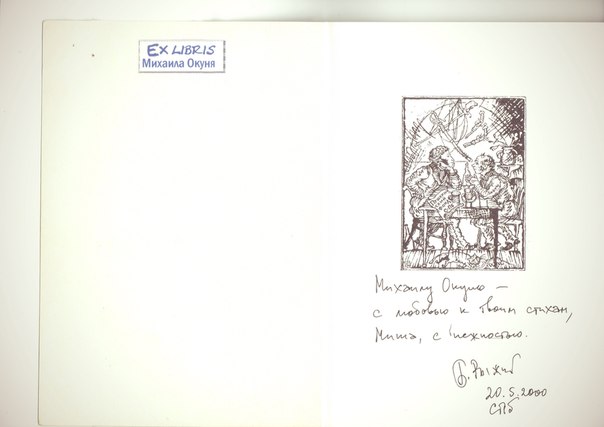 EX LIBRIS
Михаила Окуня
Михаилу Окуню —
с любовью к твоим стихам,
Миша, с нежностью.
Б. Рыжий
20.5.2000
СПб